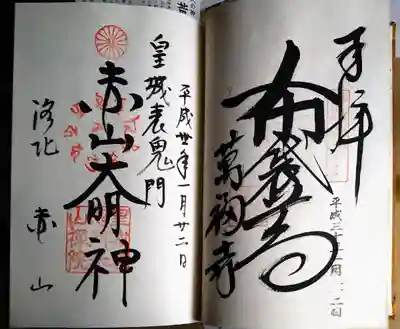 奉拝
布袋尊
萬福寺
平成三十年一月二十二日
平成卅年一月廿二日
皇城表鬼門
赤山大明神
洛北 赤山
赤山禅院